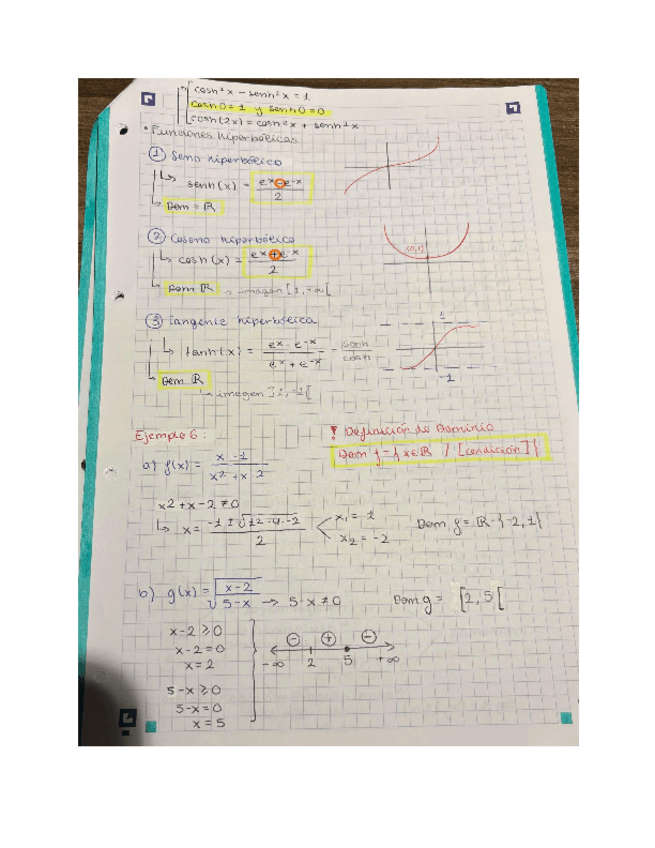 cosh²x - senh²x = 1
cosh 0 = 1 y senh 0 = 0
cosh(2x) = cosh²x + senh²x
• Funciones hiperbólicas
① Seno hiperbólico
senh(x) = (e^x - e^-x) / 2
Dom = ℝ
② Coseno hiperbólico
cosh(x) = (e^x + e^-x) / 2
(0,1)
Dom ℝ → imagen [1, +∞[
③ Tangente hiperbólica
1
tanh(x) = (e^x - e^-x) / (e^x + e^-x) = senh / cosh
-1
Dom ℝ
Ejemplo 6:
! Definición de Dominio
Dom f = { x∈ℝ / [condición] }
a) f(x) = (x - 1) / (x² + x - 2)
x² + x - 2 ≠ 0
x = (-1 ± √(1² - 4·-2)) / 2
x₁ = 1
x₂ = -2
Dom f = ℝ - {-2, 1}
b) g(x) = √((x-2) / (5-x)) → 5-x ≠ 0
Dom g = [2, 5[
x-2 ≥ 0
x-2 = 0
x = 2
- + -
-∞ 2 5 +∞
5-x ≥ 0
5-x = 0
x = 5